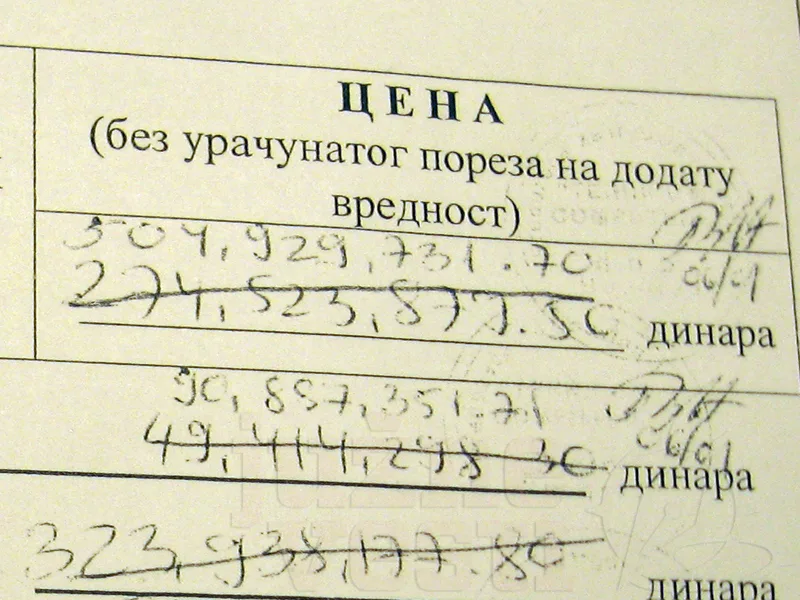 ЦЕНА
(без урачунатог пореза на додату
вредност)
504,929,731.70
274,523,879.50 динара
06/01
90,887,351.71
49,414,298.30 динара
06/01
323,938,177.80
динара
južne
vesti